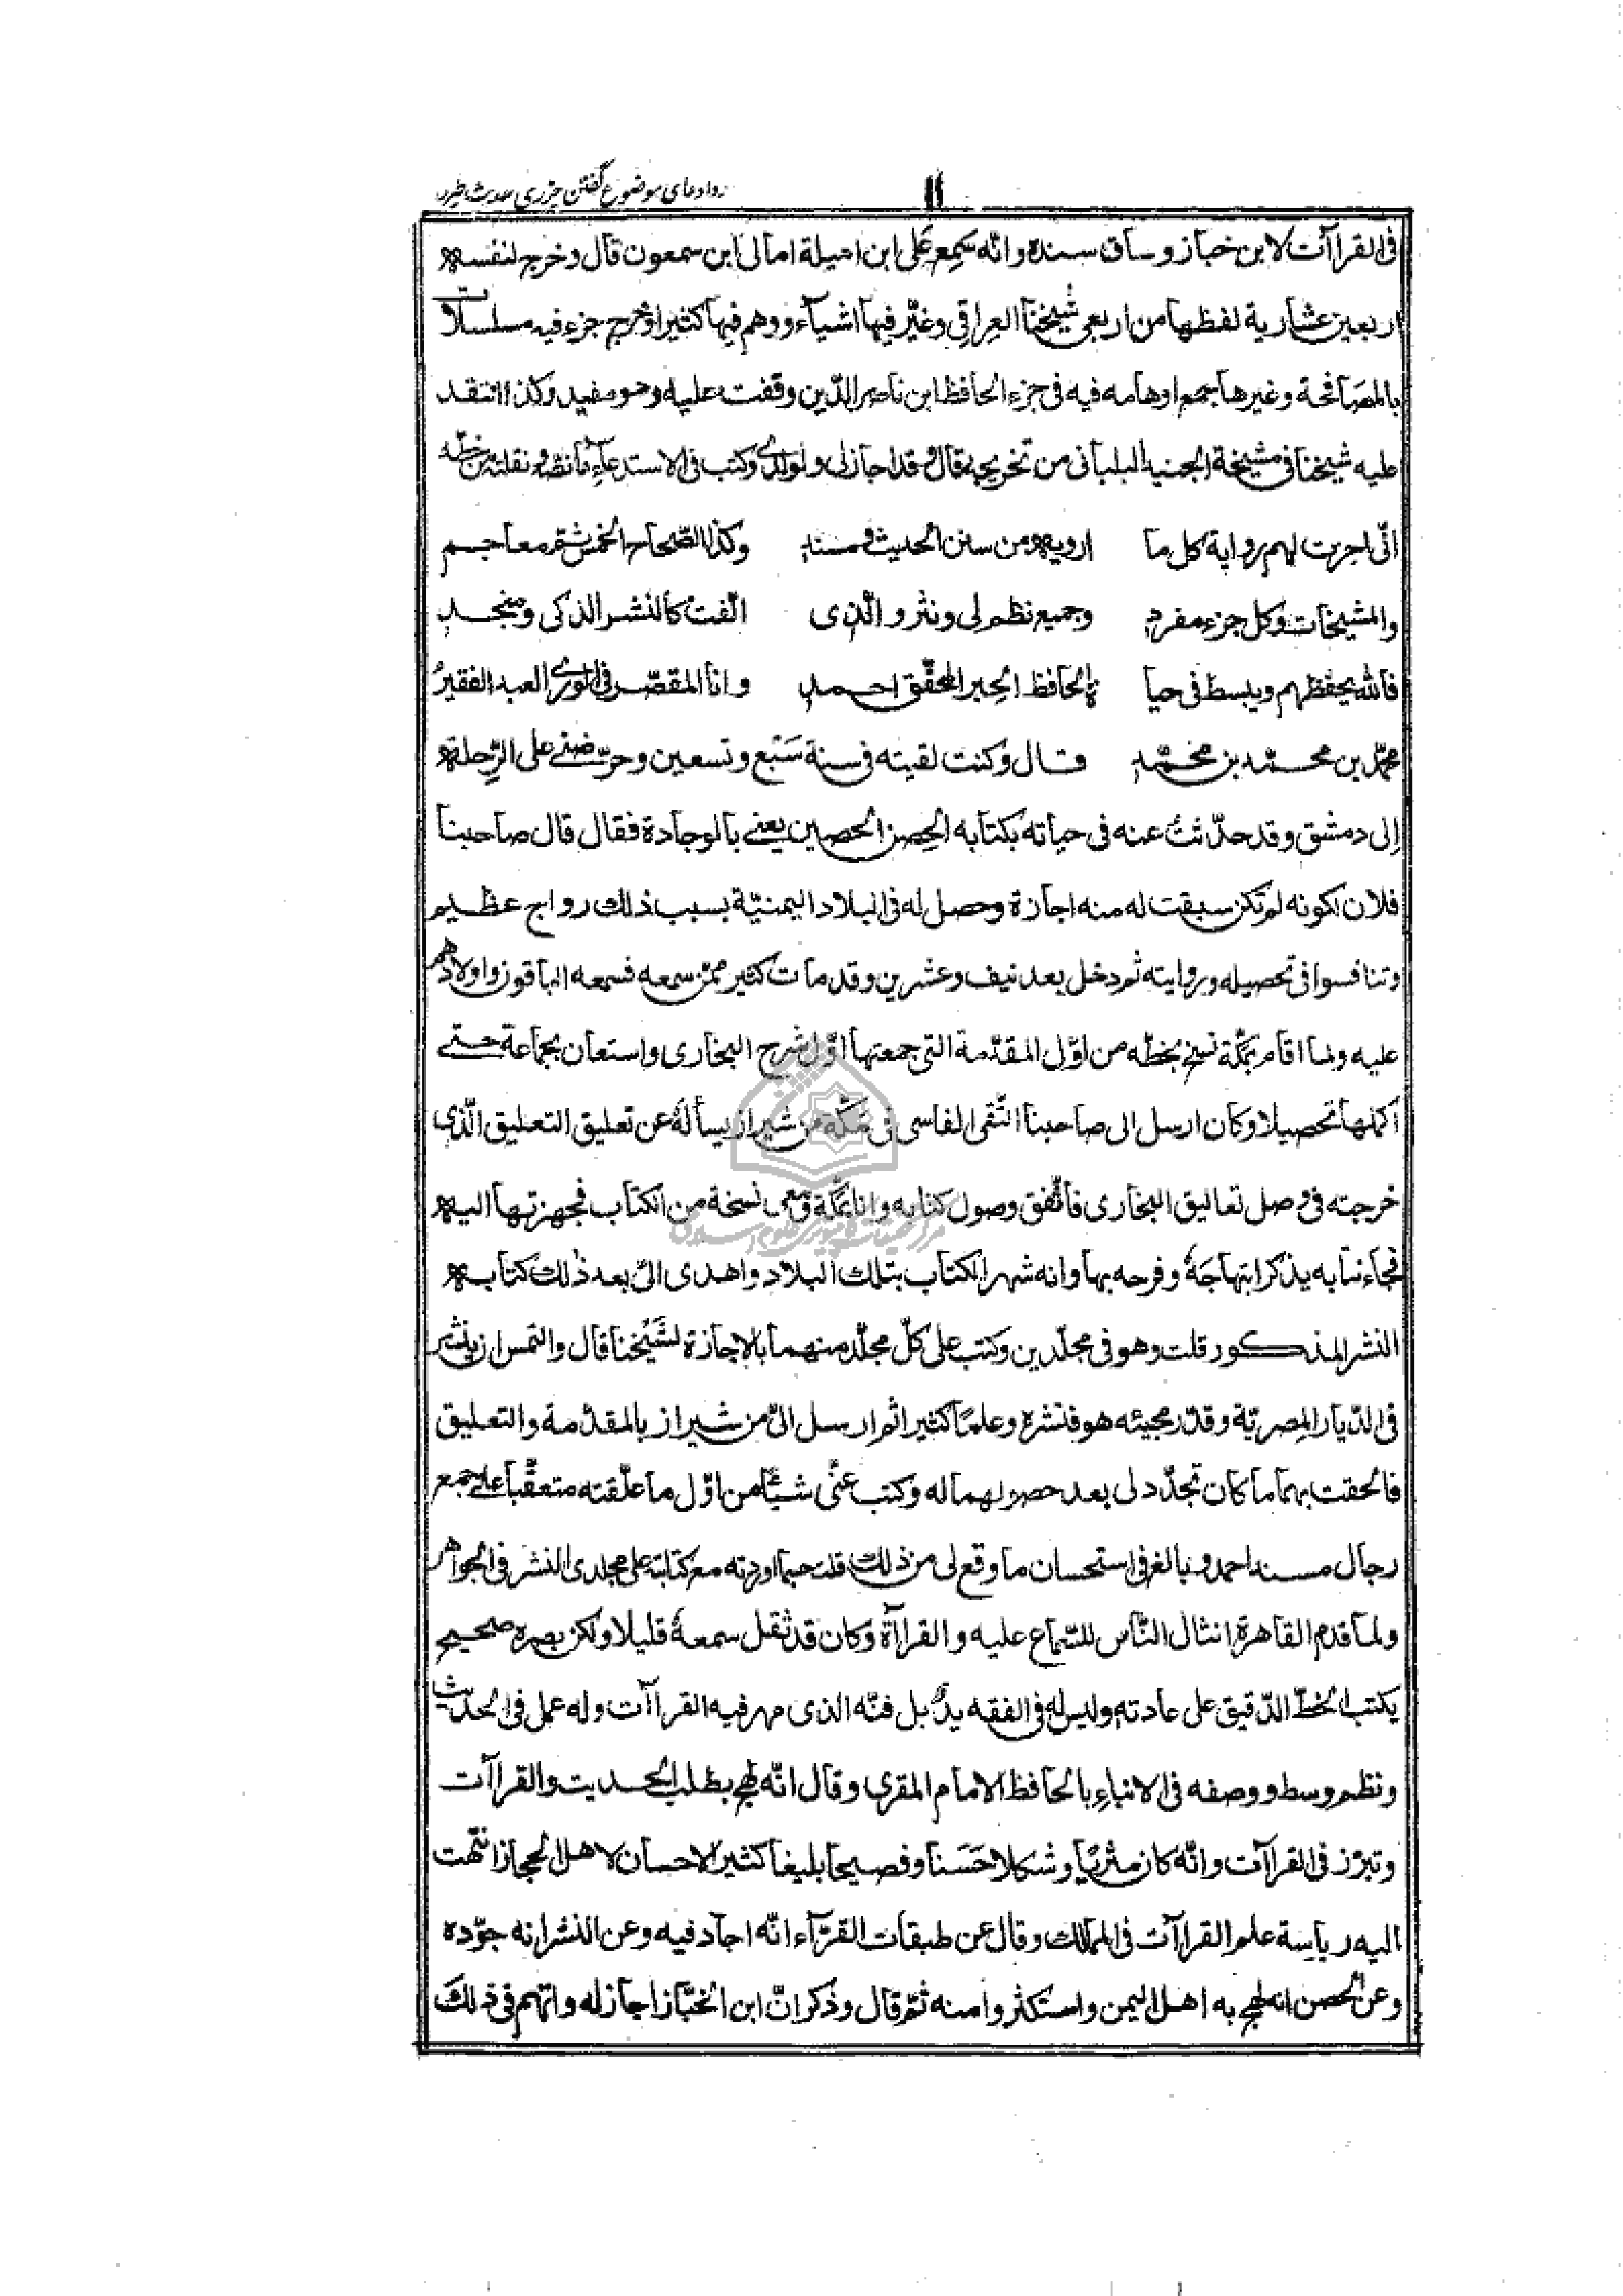 رد ادعای موضوع گفتن جزری حدیث طیر
١١
فی القراآت لابن خباز وساق سنده وانّه سمع علی ابن امیلة امالی ابن سمعون قال وخرج لنفسه
اربعین عشاریة لفظها من اربعی شیخنا العراقی وغیّر فیها اشیاء ووهم فیها کثیرا وخرج جزء فیه مسلسلات
بالمصافحة وغیرها جمع اوهامه فیه فی جزء الحافظ ابن ناصر الدّین وقفت علیه وهو مفید وکذا انتقد
علیه شیخنا فی مشیخة الجنید البلیانی من تخریجه قال وقد اجاز لی ولولدی وکتب فی الاستدعاء ما نصّه ونقلته من خطّه
انّی اجزت لهم روایة کل ما ارویه من سنن الحدیث ومسند وکذا الصّحاح الخمس ثم معاجم
والمشیخات وکل جزء مفرد وجمیع نظم لی ونثر والّذی الّفت کالنشر الذکی ومنجد
فالله یحفظهم ویبسط فی حیا ة الحافظ الحبر المحقّق احمد وانا المقصّر فی الوری العبد الفقیر
محمّد بن محمّد بن محمّد قال وکنت لقیته فی سنة سَبع وتسعین وحرّضنی علی الرّحلة
إلی دمشق وقد حدّثتُ عنه فی حیاته بکتابه الحِصن الحصین یعنی بالوجادة فقال قال صاحبنا
فلان لکونه لم تکن سبقت له منه اجازة وحصل له فی البلاد الیمنیّة بسبب ذلک رواج عظیم
وتنافسوا فی تحصیله وروایته ثم دخل بعد نیف وعشرین وقد مات کثیر ممّن سمعه فسمعه الباقون واولادهم
علیه ولما اقام بمکّة نسخ بخطّه من اوّل المقدّمة التی جمعتها اوّل شرح البخاری واستعان بجماعة حتی
اکملها تحصیلا وکان ارسل الی صاحبنا التّقی الفاسی فی مکّة من شیراز یسأله عن تعلیق التعلیق الّذی
خرجته فی وصل تعالیق البخاری فاتّفق وصول کتابه وانا بمکّة ومعی نسخة من الکتاب فجهزتها الیه
فجاء کتابه یذکر ابتهاجه وفرحه بها وانه شهر الکتاب بتلک البلاد واهدی الیّ بعد ذلک کتابه
النشر المذکور قلت وهو فی مجلّدین وکتب علی کلّ مجلّد منهما بالاجازة لشَیخنا قال والتمس ان ینشر
فی الدّیار المصریّة وقدّر مجیئه هو فنشره وعلما کثیرا ثم ارسل الیّ من شیراز بالمقدّمة والتعلیق
فالحقت بهما ما کان تجدّد لی بعد حصولهما له وکتب عنّی شیئًا من اوّل ما علّقته متعقّبا علی جمع
رجال مسند احمد وبالغ فی استحسان ما وقع لی من ذلک قلت حسبما اوردته مع کتابته علی مجلدی النشر فی الجواهر
ولما قدم القاهرة انثال النّاس للسّماع علیه والقراآة وکان قد ثقل سمعه قلیلا ولکن بصره صحیح
یکتب الخطّ الدّقیق علی عادته ولیس له فی الفقه یدٌ بل فنّه الذی مهر فیه القراآت وله عمل فی الحدیث
ونظم وسط ووصفه فی الانباء بالحافظ الامام المقری وقال انّه لهج بطلب الحدیث والقراآت
وتبرّز فی القراآت وانّه کان مثریًا وشکلا حَسَنا وفصیحا بلیغا کثیر الاحسان لاهل الحجاز انتهت
الیه ریاسة علم القراآت فی الممالک وقال عن طبقات القرّاء انّه اجاد فیه وعن النشر انه جوّده
وعن الحصن انه لهج به اهل الیمن واستکثروا منه ثم قال وذکر انّ ابن الخبّاز اجاز له واتّهم فی ذلک